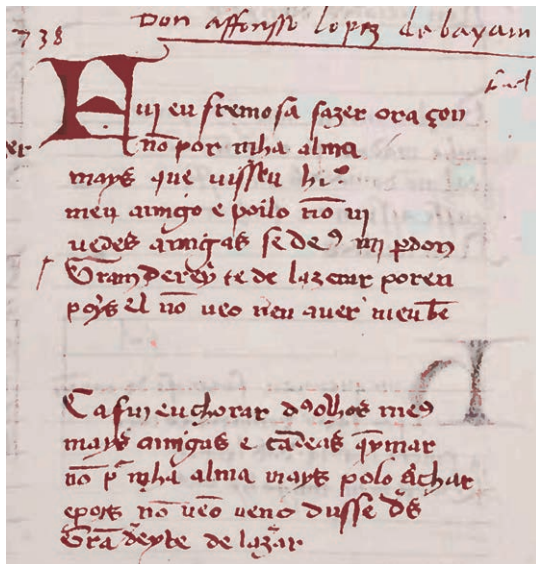 738 Don affonsso lopez de bayam
Fui eu fremosa fazer oraçon
nō por mha alma
mays que uisseu hi
meu amigo e poilo nō ui
uedes amigas se deꝯ mi ꝑdon
Gram Dereyte de lazerar poren
poys el nō ueo nen auer meu bē
Ca fui eu chorar dꝯ olhos meꝯ
mays amigas e cādeas q̄ymar
nō ꝑ mha alma mays polo achar
epois nō uēo dusse
Grā deyte de lazar